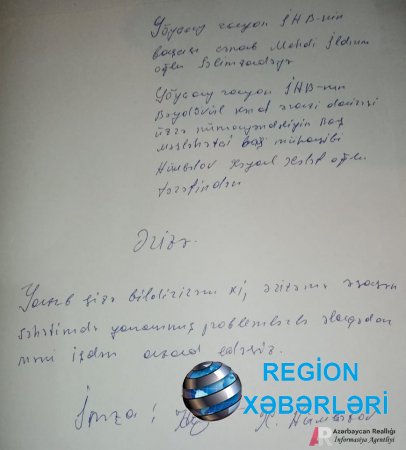 Göygöl rayon İHB-nin
başçısı cənab Mehdi İldrım
oğlu Səlimzadəyə
Göygöl rayon İHB-nin
kənd ərazi dairəsi
üzrə nümayəndəliyin Baş
Məsləhətçi baş mühasibi
Hümbətov Xəyal oğlu
tərəfindən
Ərizə.
Yazıb sizə bildirirəm ki, ərizəmə əsasən
səhətimdə yaranmış problemlərlə əlaqədar
məni işdən azad edəsiz.
İmza: X. Hümbətov
REGİON
XƏBƏRLƏRİ
AR
Azərbaycan Reallığı
İnformasiya Agentliyi